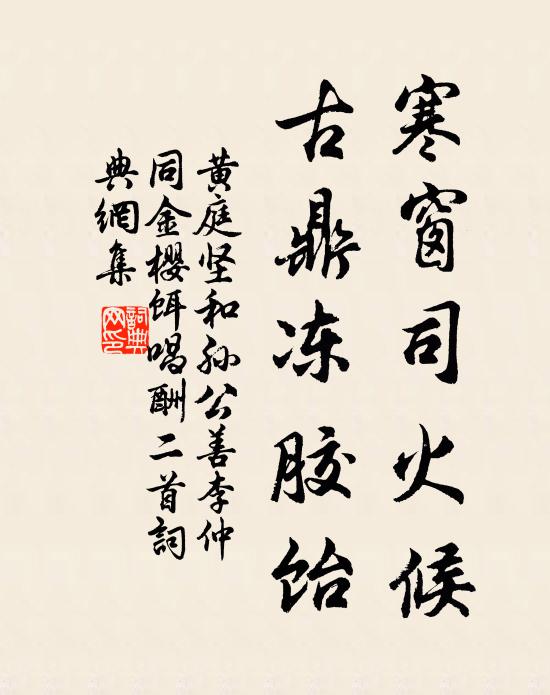 寒窗司火候
古鼎冻胶饴
黄庭坚和孙公善李仲
同金樱饵唱酬二首詞
典網集
詞典网印